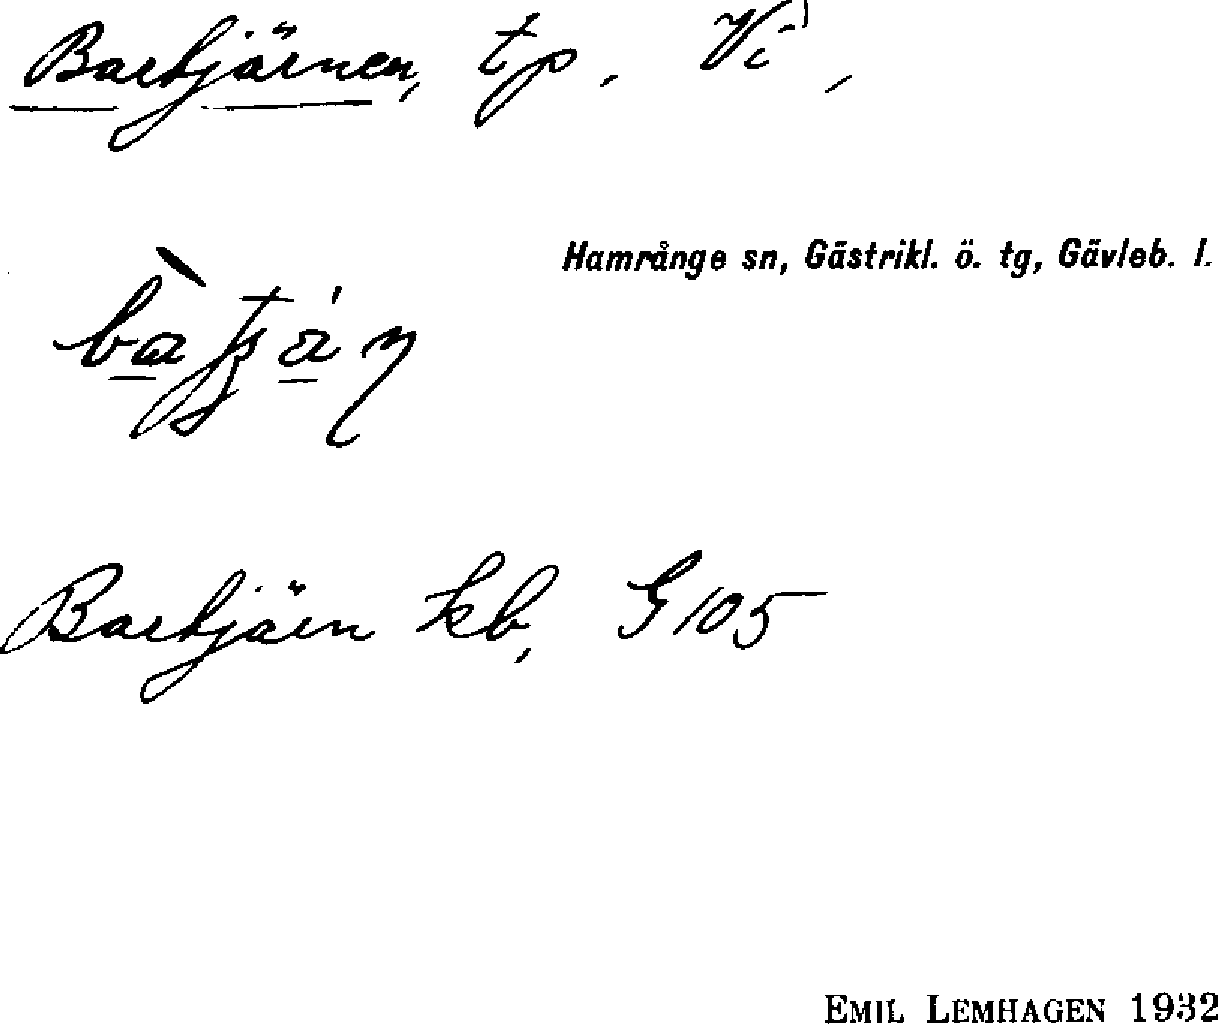 Bartjärnen, tp, Vi,
Hamrånge sn, Gästrikl. ö. tg, Gävleb. l.
Bartjärn kb, G 105
EMIL LEMHAGEN 1932